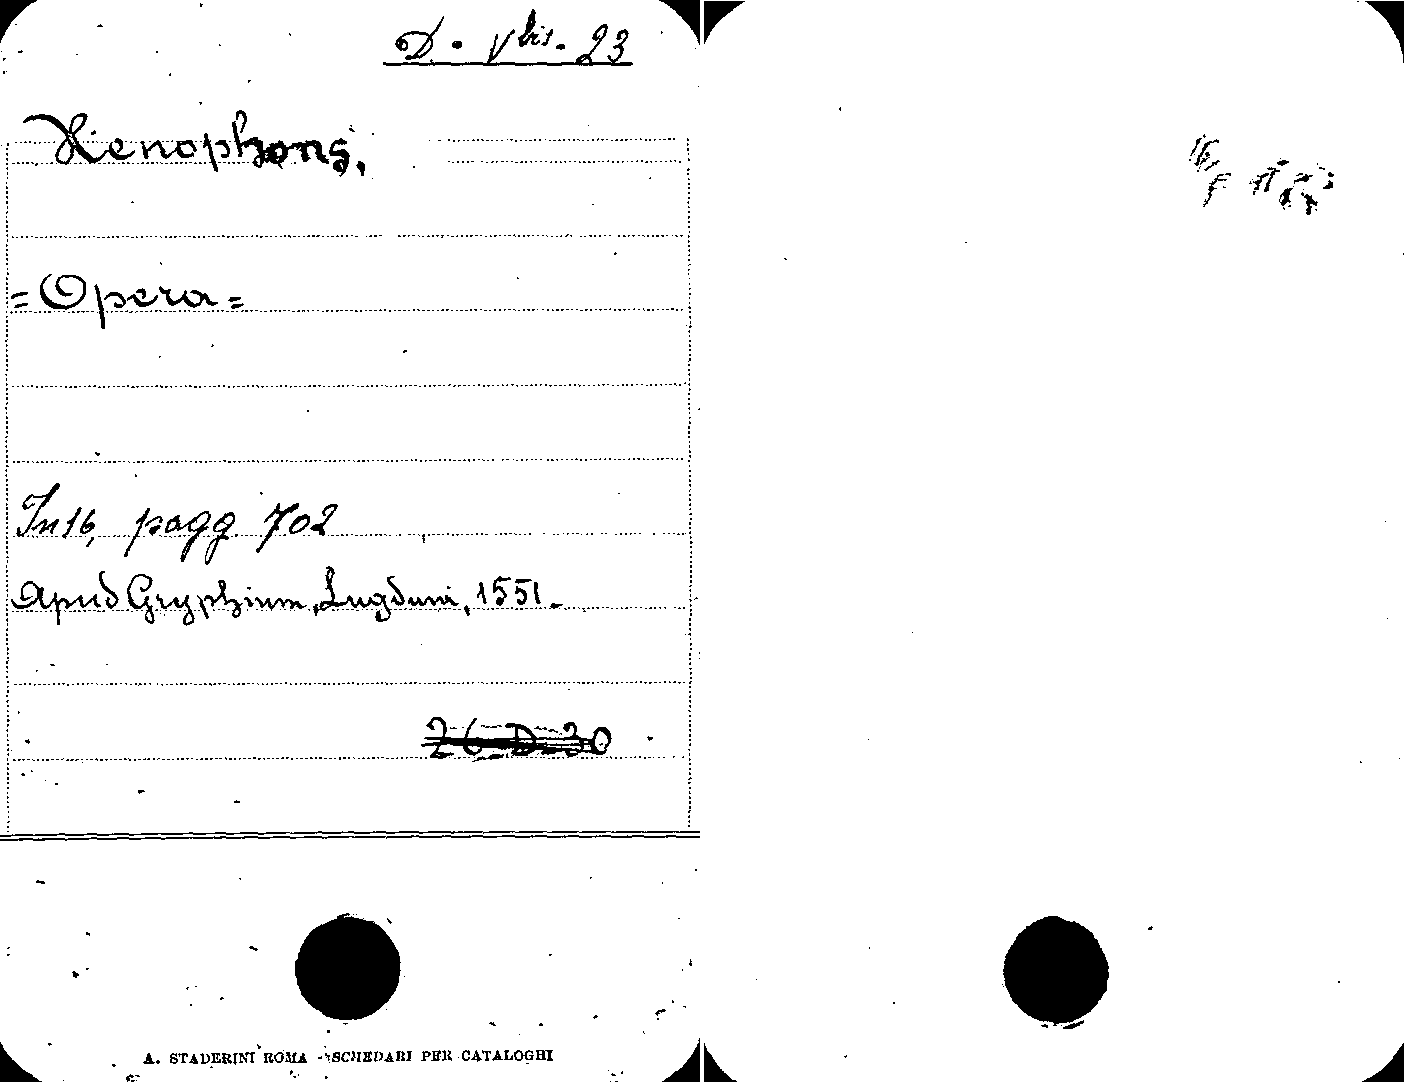 D. Vbis. 23
Xenophons,
=Opera=
In 16, pagg. 702
Apud Gryphium, Lugduni, 1551.
26 D 30
A. STADERINI ROMA - SCHEDARI PER CATALOGHI